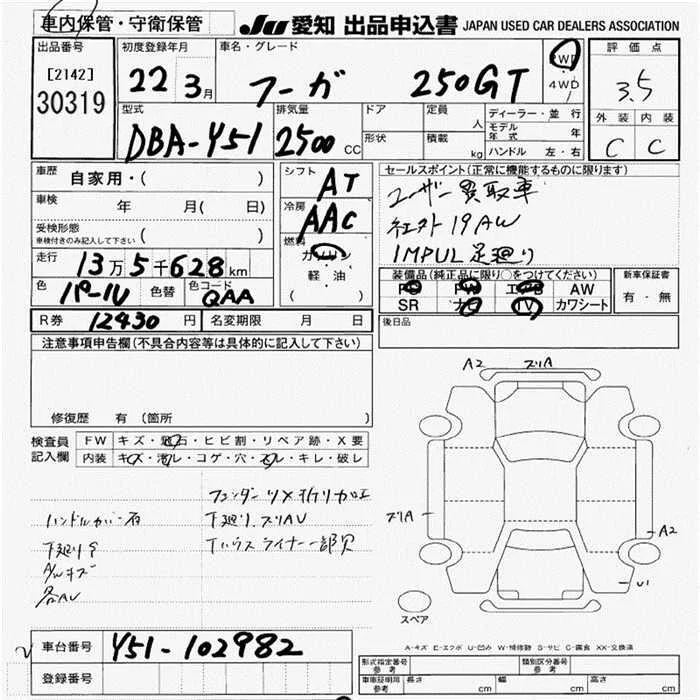 車内保管・守衛保管
JU 愛知 出品申込書 JAPAN USED CAR DEALERS ASSOCIATION
出品番号
[2142]
30319
初度登録年月
22 3月
車名・グレード
フーガ 250GT
2WD
・
4WD
評価点
3.5
外装 内装
C C
型式
DBA-Y51
排気量
2500 CC
ドア
形状
定員
人
積載
kg
ディーラー・並行
モデル年式 年
ハンドル 左・右
車歴
自家用・( )
車検 年 月( 日)
受検形態
車検付きのみ記入して下さい ( )
走行
13万5千628km
色
パール
色替
色コード
QAA
シフト
AT
冷房
AAC
燃料
ガソリン
軽・油
( )
セールスポイント(正常に機能するものに限ります)
ユーザー買取車
社外19AW
IMPUL足廻り
装備品(純正品に限り○をつけてください)
PS PW エアB AW
SR ナビ TV カワシート
新車保証書
有・無
R券 12430円
名変期限 月 日
後日品
注意事項申告欄(不具合内容等は具体的に記入して下さい)
修復歴 有 (箇所 )
検査員
記入欄
FW キズ・飛石・ヒビ割・リペア跡・X要
内装 キズ・汚レ・コゲ・穴・スレ・キレ・破レ
フェンダーツメ折り加工
ハンドルカバー有
下廻り、スリAU
下廻りサ
Tハウスライナー一部欠
A/Wキズ
各AU
A2 スリA
スリA
A2
U1
スペア
A-キズ E-エクボ U-凹み W-補修跡 S-サビ C-腐食 XX-交換済
車台番号 Y51-102982
登録番号
形式指定番号
参考
類別区分番号
参考
車庫証明用
参考
長さ cm
幅 cm
高さ cm